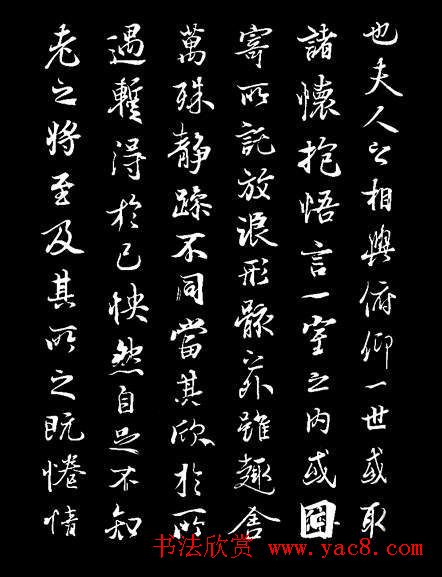 也夫人之相與俯仰一世或取
諸懷抱悟言一室之内或因
寄所託放浪形骸之外雖趣舍
萬殊静躁不同當其欣於所
遇暫得於己怏然自足不知
老之将至及其所之既惓情
书法欣赏 www.yac8.com